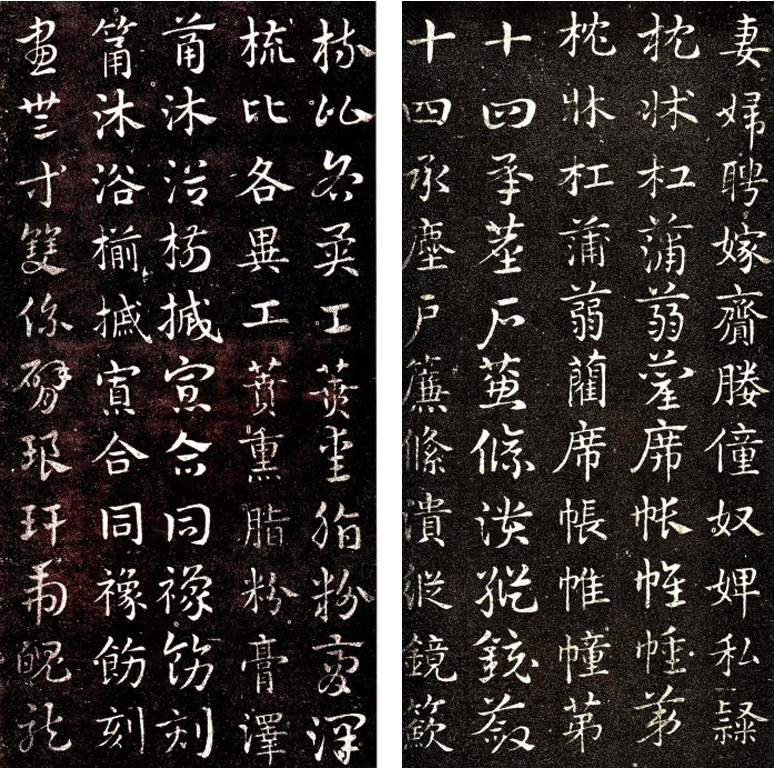 妻婦聘嫁齎媵僮奴婢私隸
枕牀杠蒲蒻藺席帳帷幢第
枕牀杠蒲蒻藺席帳帷幢苐
十四承塵戶簾絛潰縱鏡籢
十四承塵戶簾絛潰縱鏡籢
梳比各異工蕡薰脂粉膏澤
梳比各異工蕡熏脂粉膏澤
筩沐浴揃搣寡合同豫飭刻
筩沐浴揃搣寡合同豫飭刻
畫無等雙係臂琅玕虎魄龍